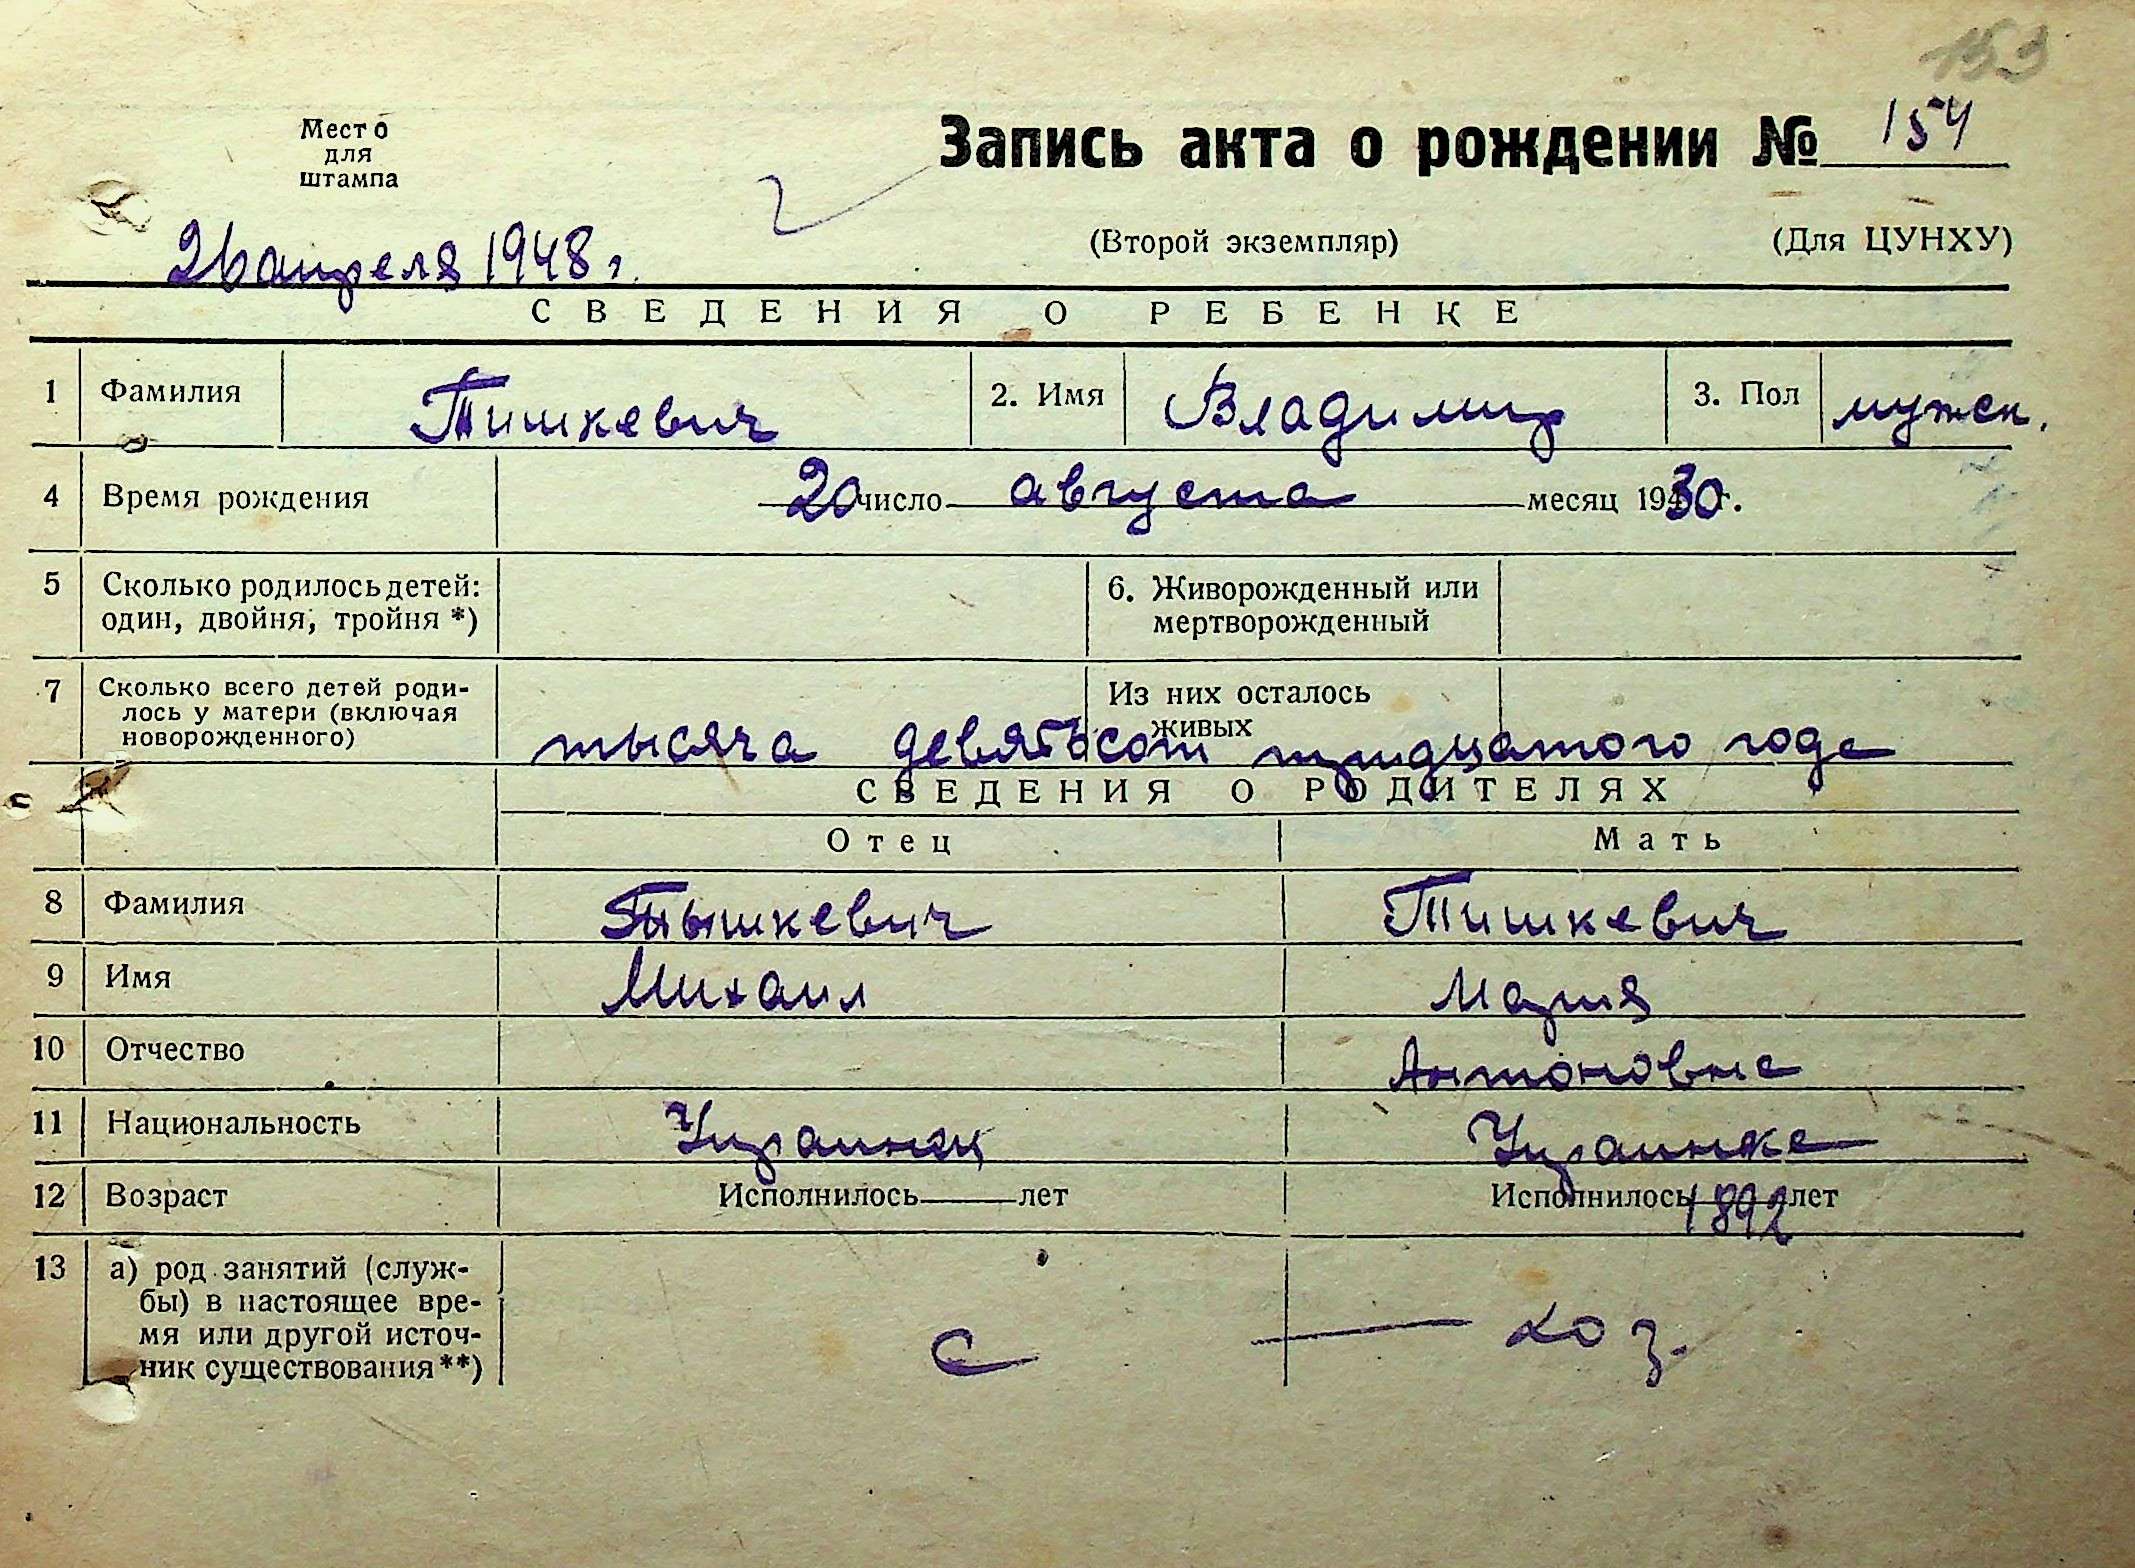 153
Место
для
штампа
Запись акта о рождении № 154
26 апреля 1948 г.
(Второй экземпляр)
(Для ЦУНХУ)
СВЕДЕНИЯ О РЕБЕНКЕ
1 Фамилия Тишкевич 2. Имя Владимир 3. Пол мужск.
4 Время рождения 20 число августа месяц 1930 г.
5 Сколько родилось детей: один, двойня, тройня *)
6. Живорожденный или мертворожденный
7 Сколько всего детей роди-
лось у матери (включая
новорожденного)
Из них осталось
живых
тысяча девятьсот тридцатого года
СВЕДЕНИЯ О РОДИТЕЛЯХ
Отец Мать
8 Фамилия Тышкевич Тишкевич
9 Имя Михаил Мария
10 Отчество Антоновна
11 Национальность Украинец Украинка
12 Возраст Исполнилось лет Исполнилось 1892 лет
13 а) род занятий (служ-
бы) в настоящее вре-
мя или другой источ-
ник существования**)
с — хоз.